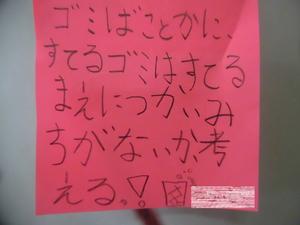 ゴミばことかに、
すてるゴミは、すてる
まえにつかいみ
ちがないか考
える。!